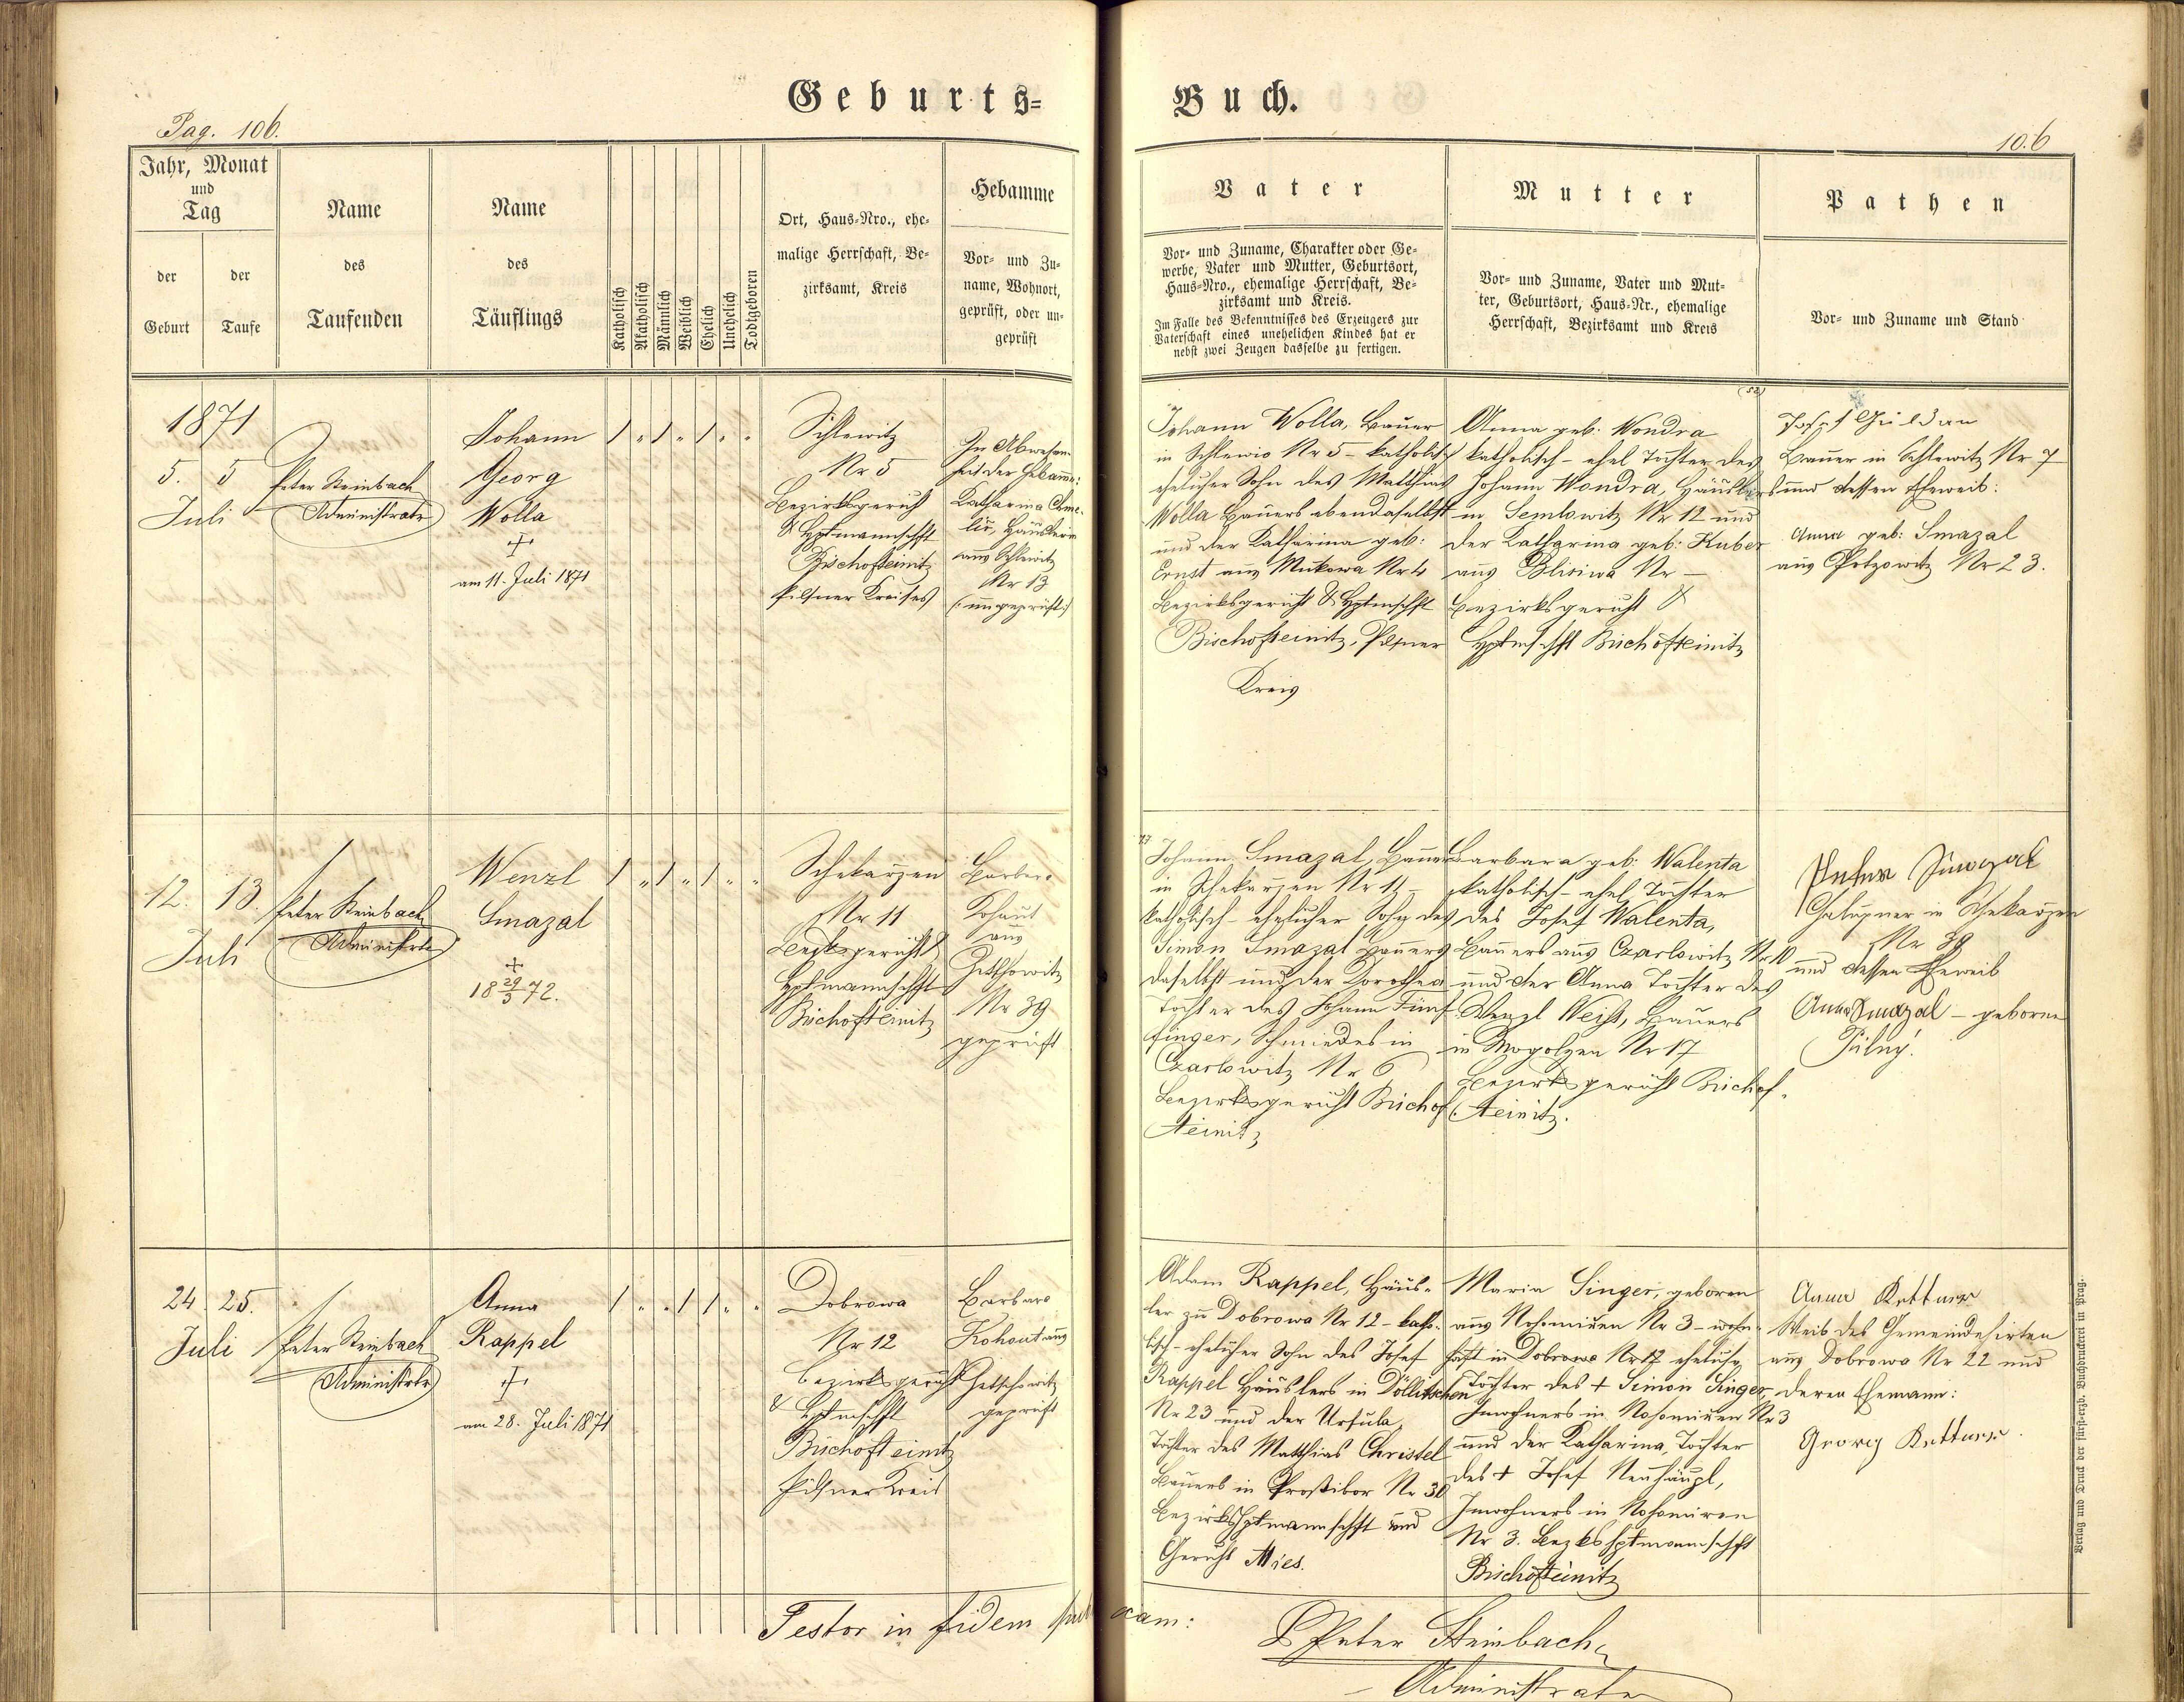 Geburts=
Buch.
Pag. 106.
106
Jahr, Monat
und
Tag
der
Geburt
der
Taufe
Name
des
Taufenden
Name
des
Täuflings
Katholisch
Akatholisch
Männlich
Weiblich
Ehelich
Unehelich
Todtgeboren
Ort, Haus=Nro., ehe=
malige Herrschaft, Be=
zirksamt, Kreis
Hebamme
Vor= und Zu=
name, Wohnort,
geprüft, oder un=
geprüft
Vater
Vor= und Zuname, Charakter oder Ge=
werbe, Vater und Mutter, Geburtsort,
Haus=Nro., ehemalige Herrschaft, Be=
zirksamt und Kreis.
Im Falle des Bekenntnisses des Erzeugers zur
Vaterschaft eines unehelichen Kindes hat er
nebst zwei Zeugen dasselbe zu fertigen.
Mutter
Vor= und Zuname, Vater und Mut=
ter, Geburtsort, Haus=Nr., ehemalige
Herrschaft, Bezirksamt und Kreis
Pathen
Vor= und Zuname und Stand
1871
5. 5
Juli
Peter Steinbach
Administrator
Johann
Georg
Wolla
+
am 11. Juli 1871
1 " 1 " 1 " "
Schlewitz
Nr 5
Bezirksgericht
& Hptmannschft
Bischofteinitz
Pilsner Kreises
In Abwesen=
heit der Hebamme:
Katharina
Häuslerin
aus Schlewitz
Nr 13
(: ungeprüft :)
Johann Wolla, Bauer
in Schlewic Nr 5 – katholisch
ehelicher Sohn des Matthias
Wolla Bauers ebendaselbst
und der Katharina geb:
Ernst aus Mukowa Nr 4
Bezirksgericht & Hptmschft
Bischofteinitz, Pilsner
Kreis
Anna geb. Wondra
katholisch – ehel Tochter des
Johann Wondra, Häuslers
in Semlowitz Nr 12 und
der Katharina geb: Huber
aus Blisiwa Nr –
Bezirksgericht &
Hptmschft Bischofteinitz
Josef
Bauer in Schlewitz Nr 7
und dessen Eheweib:
Anna geb: Smazal
aus Nr 23.
12. 13.
Juli
Peter Steinbach
Administrator
Wenzl
Smazal
+
18 29/3 72.
1 " 1 " 1 " "
Schekarzen
Nr 11
Bezksgericht
Hptmannschft
Bischofteinitz
Barbara
Kohout
aus
Zetschowitz
Nr 39
geprüft
Johann Smazal, Bauer
in Schekarzen Nr 11 –
katholisch – ehelicher Sohn des
Simon Smazal Bauers
daselbst und der Dorothea
Tochter des Johann Fünf
finger, Schmiedes in
Czarlowitz Nr 6
Bezirksgericht Bischof
teinitz
Barbara geb: Walenta
katholisch – ehel Tochter
des Josef Walenta,
Bauers aus Czarlowitz Nr 10
und der Anna Tochter des
Wenzl Weiß, Bauers
in Mogolzen Nr 17
Bezirksgericht Bischof=
teinitz.
Peter Smazal
Chalupner in Schekarzen
Nr 39
und dessen Eheweib
Anna Smazal – geborne
24. 25.
Juli
Peter Steinbach
Administrator
Anna
Rappel
+
am 28. Juli 1871
1 " " 1 1 " "
Dobrowa
Nr 12
Bezirksgericht
& Hptmschft
Bischofteinitz
Pilsner Kreis
Barbara
Kohout aus
Zetschowitz
geprüft
Adam Rappel, Häus=
ler zu Dobrowa Nr 12 – katho=
lisch – ehelicher Sohn des Josef
Rappel Häuslers in Döllitschen
Nr 23 und der Ursula
Tochter des Matthias Christel
Bauers in Prostibor Nr 30
Bezirkshptmannschft und
Gericht Mies.
Maria Singer, geboren
aus Nr 3 – wohn=
haft in Dobrowa Nr 12 eheliche
Tochter des + Simon Singer,
Inwohners in Nr 3
und der Katharina, Tochter
des + Josef Neuhäupl,
Inwohners in
Nr 3. Bezkshptmannschft
Bischofteinitz
Anna Kettner
Weib des Gemeindehirten
aus Dobrowa Nr 22 und
deren Ehemann:
Georg Kettner.
Testor in fidem publicam:
P Peter Steinbach
Administrator
Verlag und Druck der fürst=erzb. Buchdruckerei in Prag.